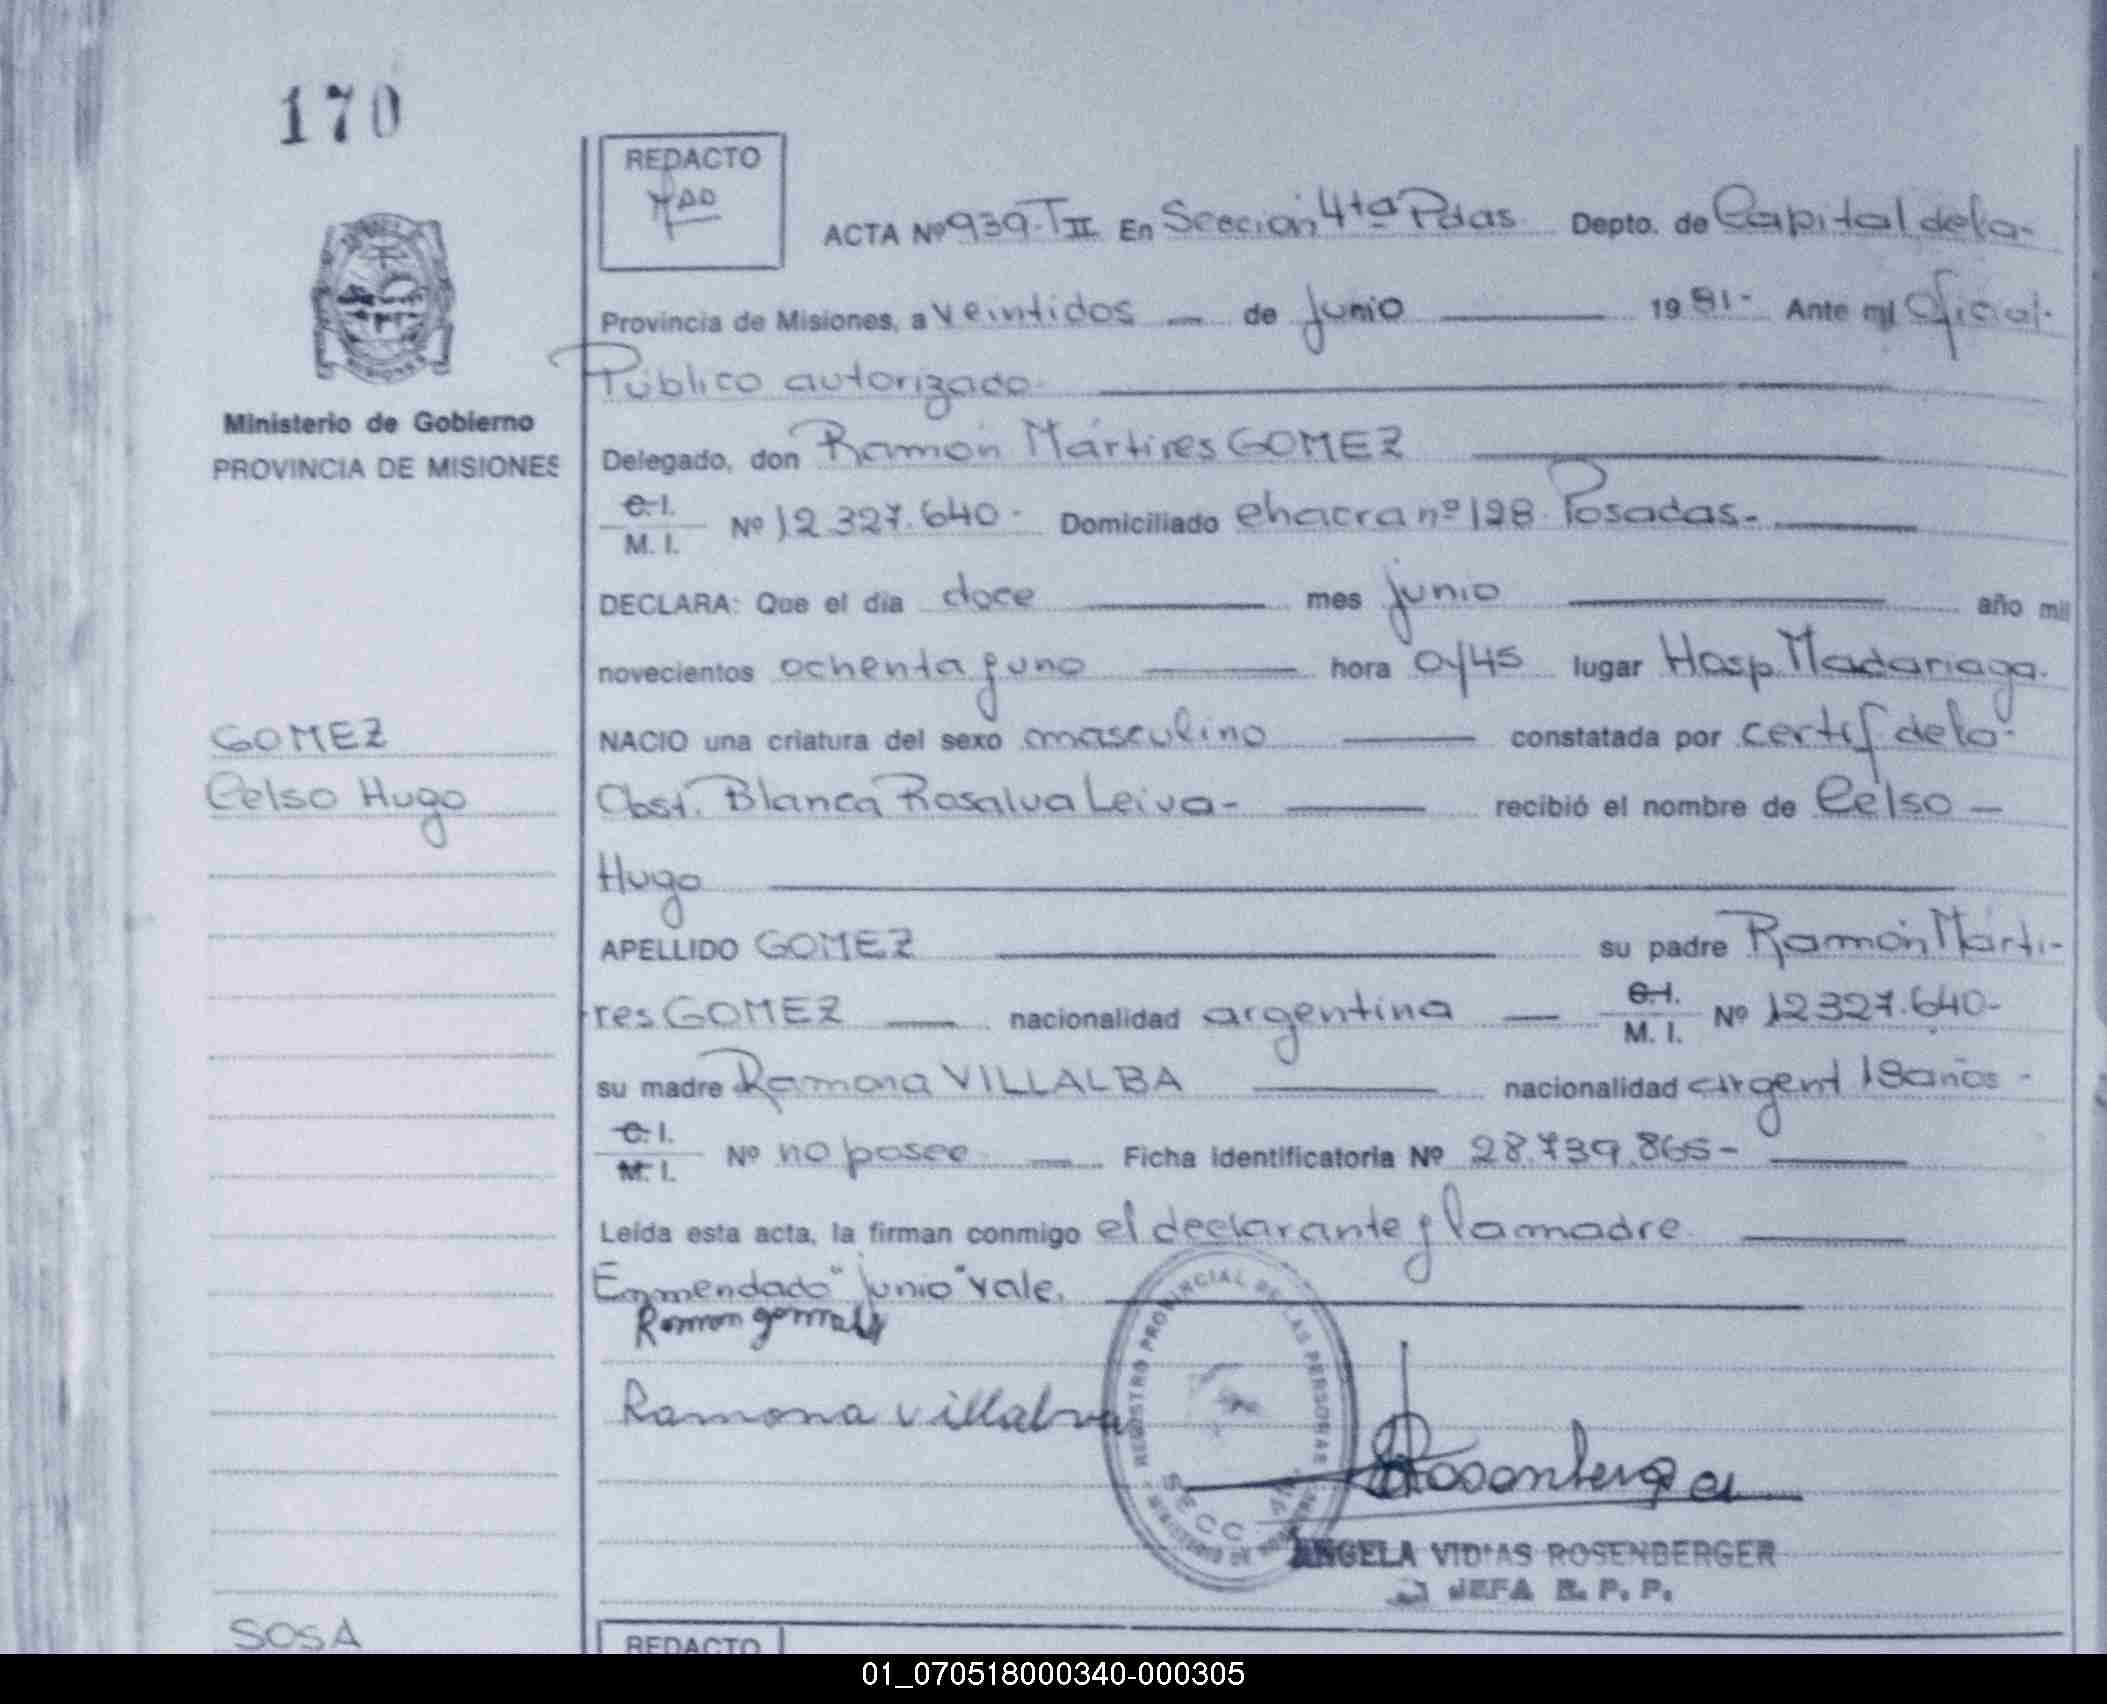 170
REDACTO
ACTA Nº 939-TII En Sección 4ta Pdas Depto. de Capital de la-
Provincia de Misiones, a veintidos — de junio — 1981- Ante mí Oficial-
Público autorizado-
Ministerio de Gobierno
PROVINCIA DE MISIONES
Delegado, don Ramón Mártires GOMEZ
C.I.
M. I. Nº 12.327.640- Domiciliado chacra nº 198- Posadas-
DECLARA: Que el día doce — mes junio — año mil
novecientos ochenta y uno — hora 0/45 lugar Hosp. Madariaga-
GOMEZ
NACIO una criatura del sexo masculino — constatada por certif de la-
Celso Hugo
Obst. Blanca Rosalva Leiva- — recibió el nombre de Celso —
Hugo
APELLIDO GOMEZ — su padre Ramón Márti-
res GOMEZ — nacionalidad argentina — C.I.
M. I. Nº 12.327.640-
su madre Ramona VILLALBA — nacionalidad argent 18 años -
C.I.
M. I. Nº no posee — Ficha identificatoria Nº 28.739.865-
Leída esta acta, la firman conmigo el declarante y la madre
Enmendado "junio" vale.
Ramon
Ramona villalva
REGISTRO PROVINCIAL DE LAS PERSONAS
SECC.
Rosenberger
ANGELA VIDIAS ROSENBERGER
JEFA R. P. P.
SOSA
REDACTO
01_070518000340-000305